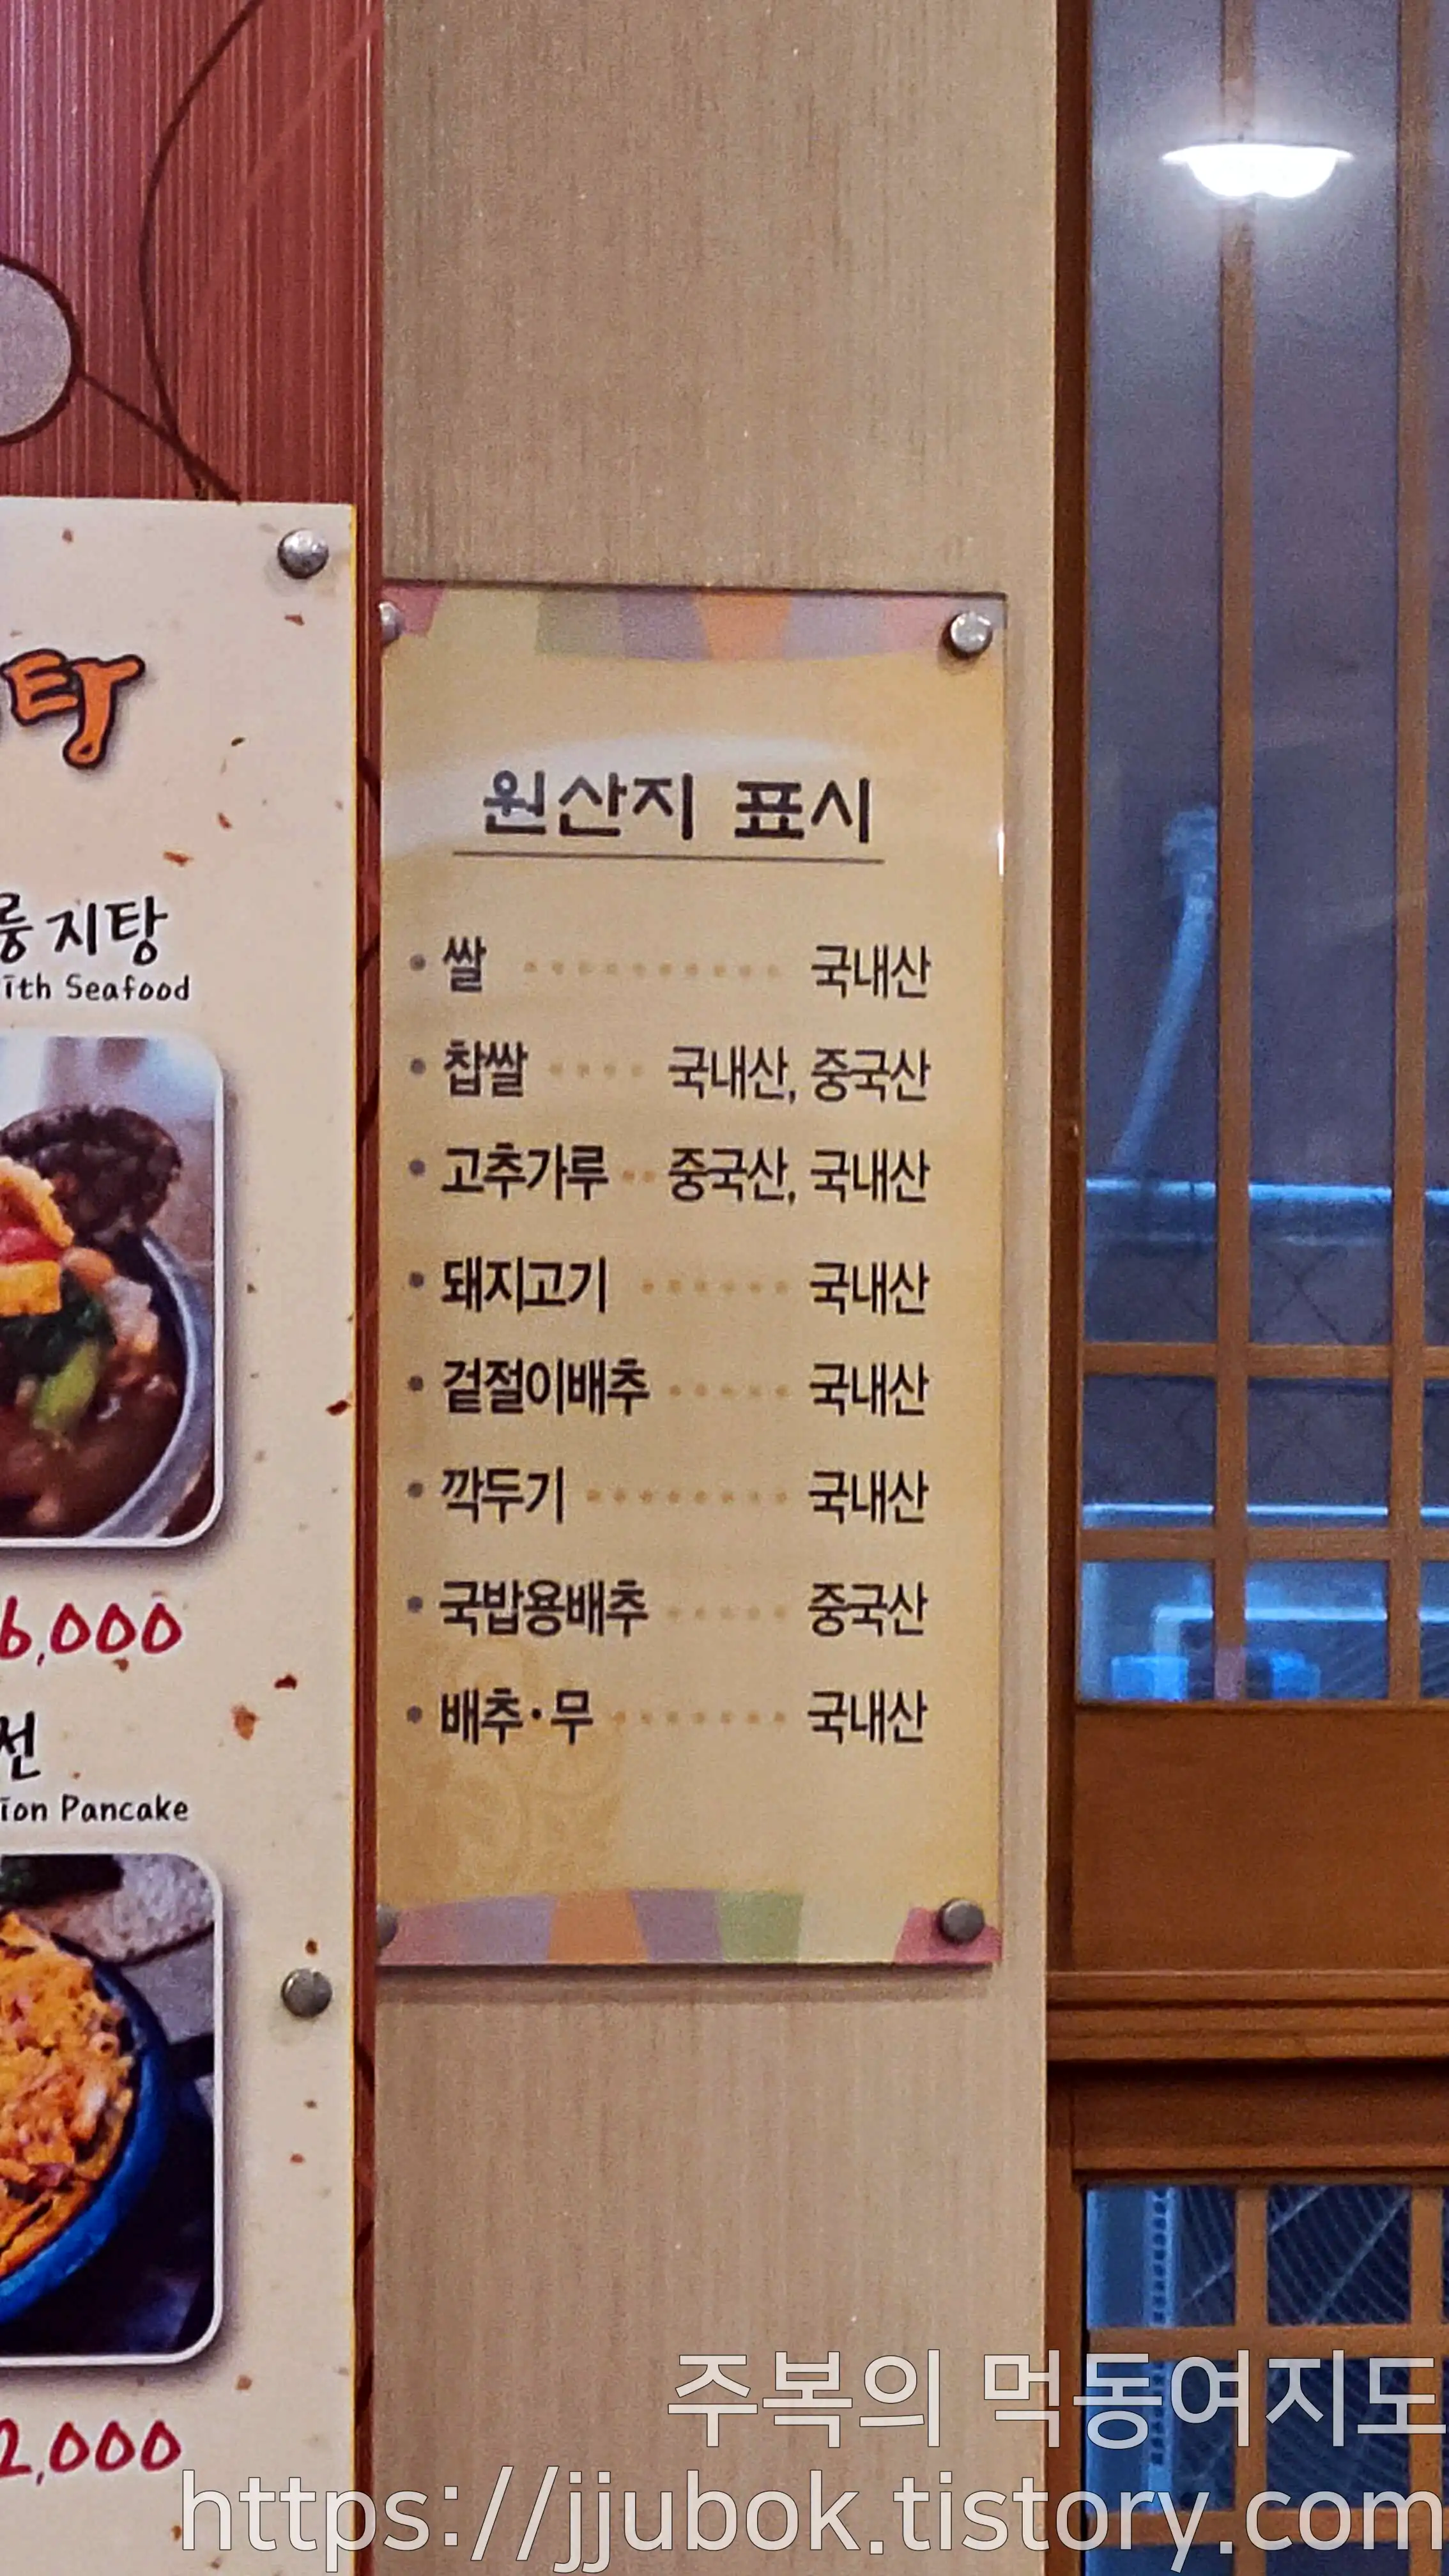 탕
룽지탕
ith Seafood
6,000
전
ion Pancake
2,000
원산지 표시
• 쌀 ··········· 국내산
• 찹쌀 ···· 국내산, 중국산
• 고추가루 ·· 중국산, 국내산
• 돼지고기 ······ 국내산
• 겉절이배추 ····· 국내산
• 깍두기 ········ 국내산
• 국밥용배추 ····· 중국산
• 배추·무 ······· 국내산
주복의 먹동여지도
https://jjubok.tistory.com